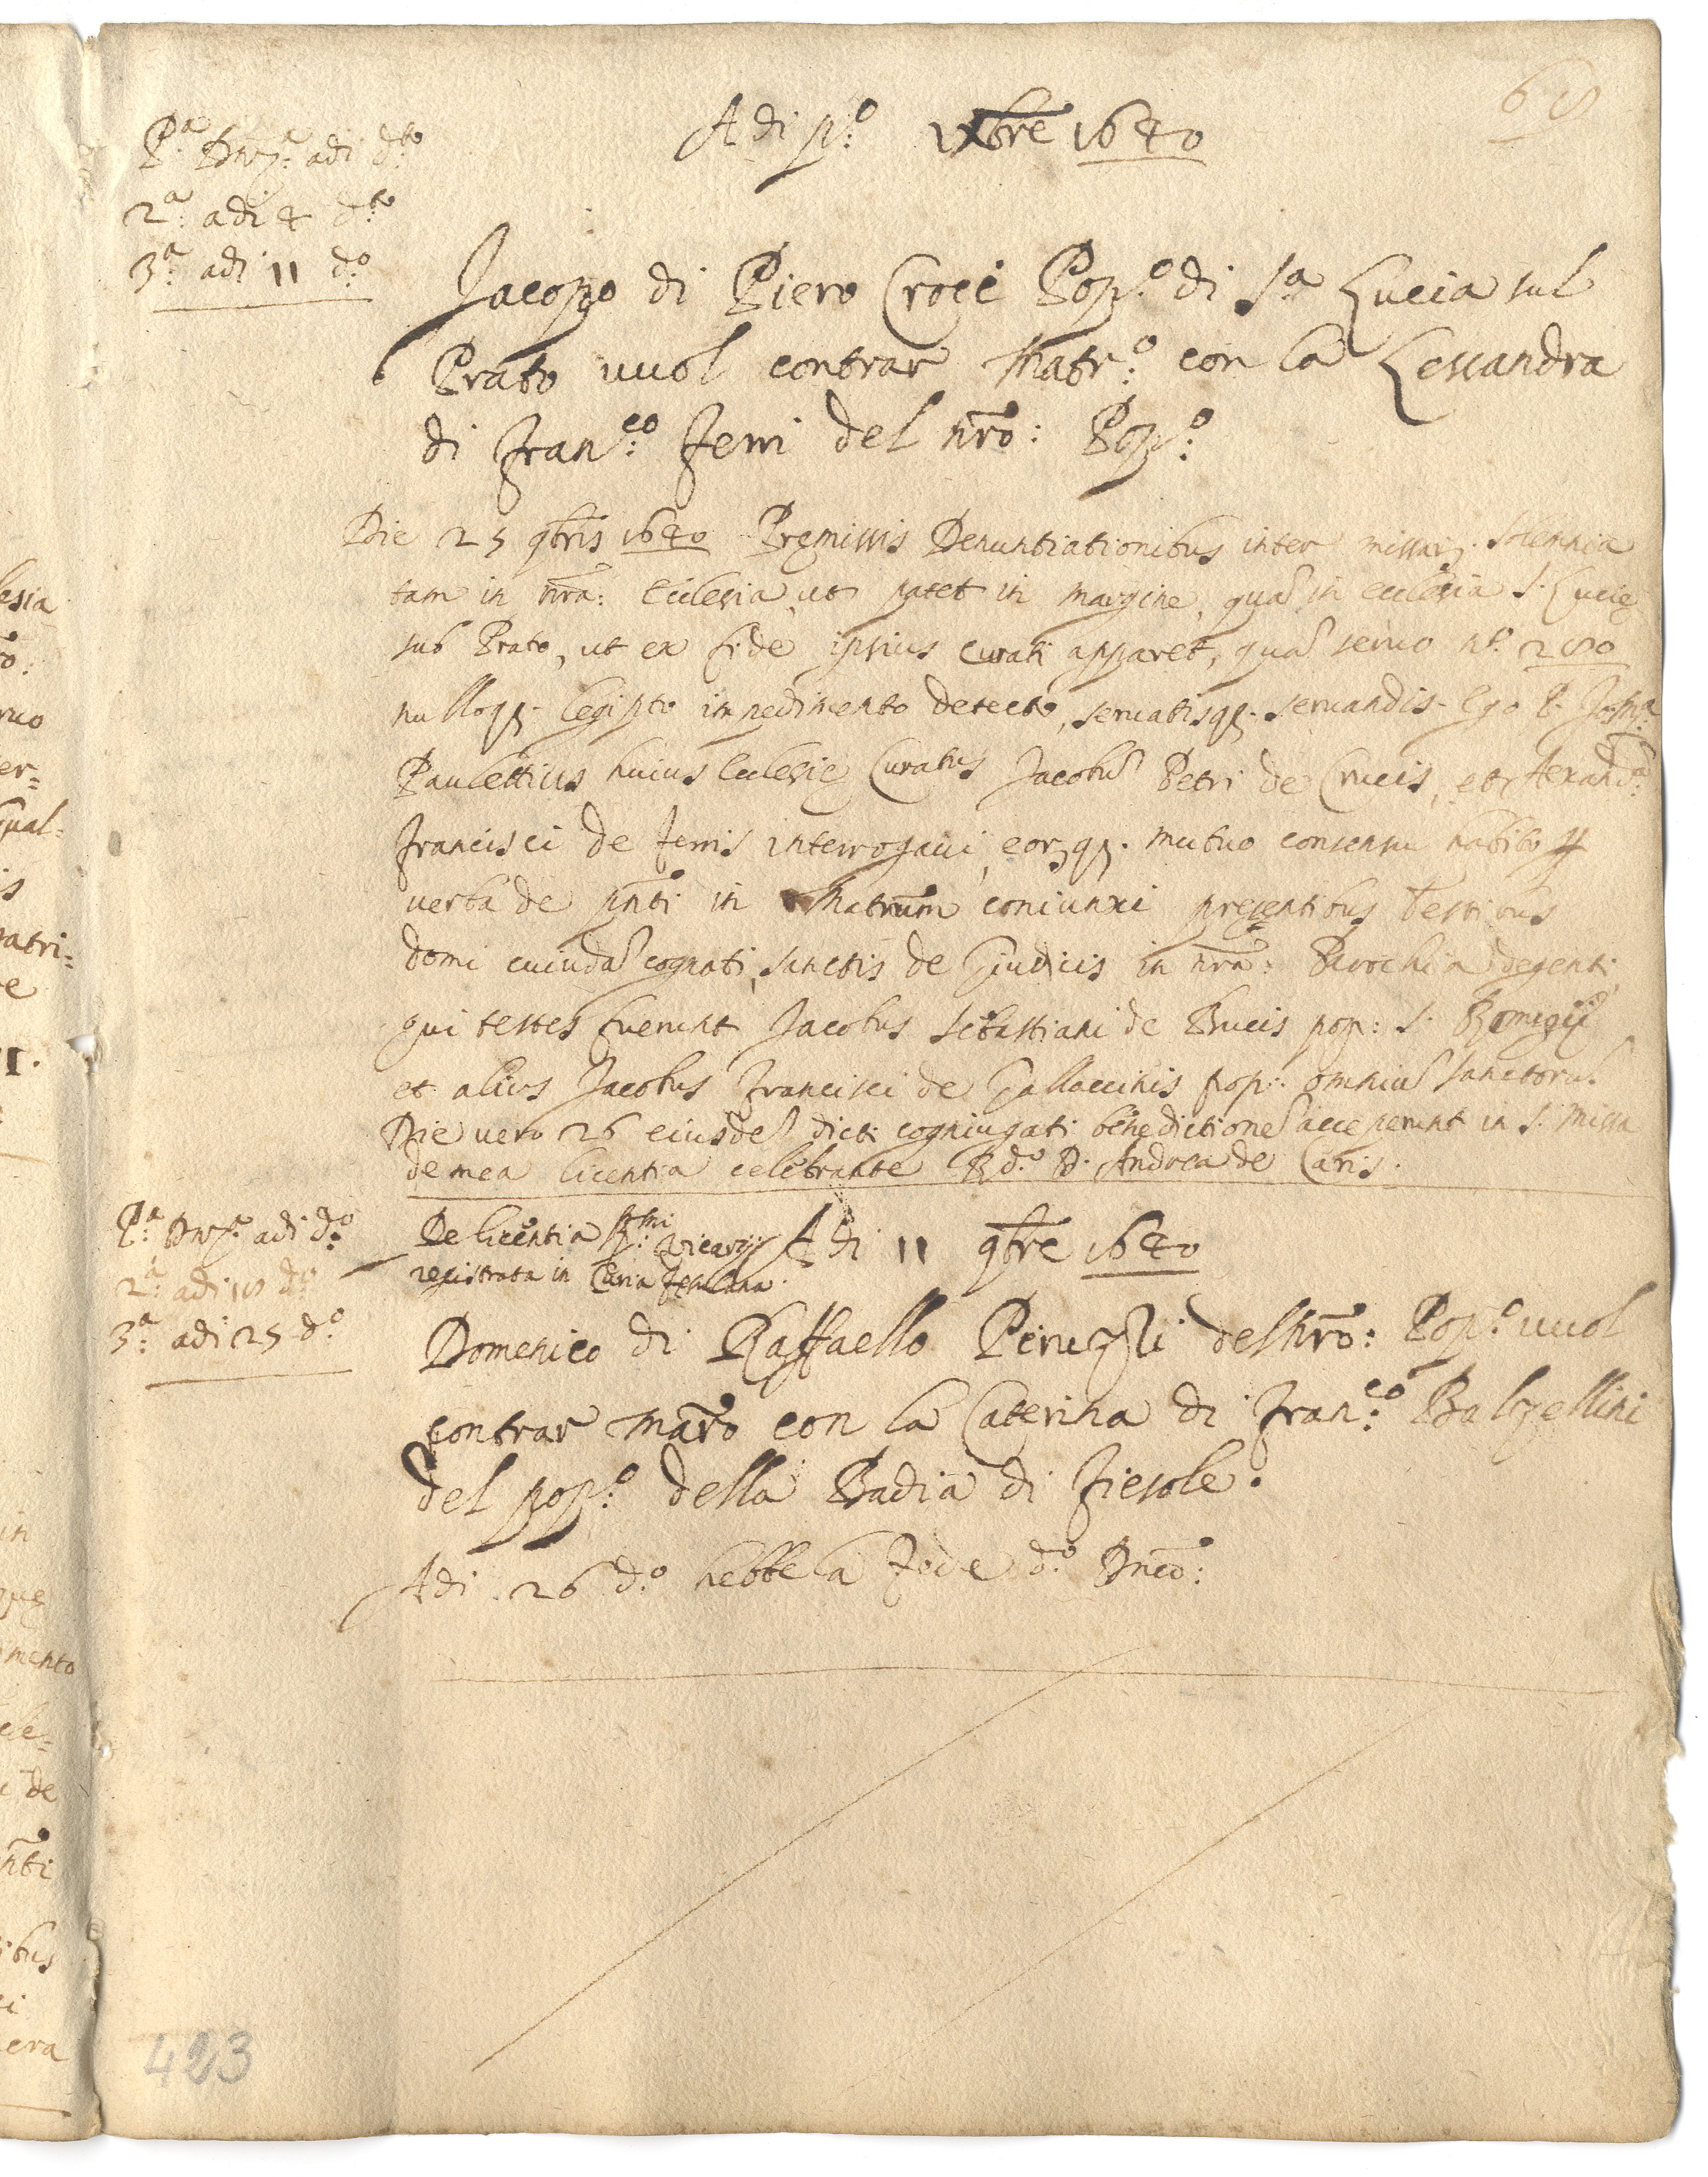 68
Adi p.º 9bre 1640
P.ª Dnz.ª adi d.to
2.ª adi 4 d.to
3.ª adi 11 d.º
Jacopo di Piero Croci Pop.º di S.ª Lucia sul
Prato vuol contrar Matr.º con la Lessandra
di Fran.co Ferri del nro: Pop.º
Die 25 9bris 1640 Premissis Denuntiationibus inter missar. solemnia
tam in nra: Ecclesia, ut patet in margine, qua in ecclesia S. Lucie
sub Prato, ut ex fide ipsius Curati apparet, qua servo nº. 280
nulloq. legipto impedimento detecto, servatisq. servandis. Ego P.
Paulettius huius Ecclesie Curatus Jacobu Petri de Crucis, et Alexand.ª
Francisci de Ferris interrogavi, eorq. mutuo consensu habito p
verba de pnti in Matrum coniunxi presentibus testibus
domi cuiusda cognati, Sanctis de Giudicis in nra: Parochia degenti
qui testes fuerunt Jacobus Sebastiani de Bucis pop: S. Romigij
et alius Jacobus Francisci de Gallaccinis pop: omniu Sanctoru.
Die vero 26 eiusde dicti cogniugati benedictione acceperunt in S. Missa
de mea licentia celebrante R.do D. Andrea de Caris.
P.ª Dnz.ª adi d.º
2.ª adi 18 d.º
3.ª adi 25 d.º
De licentia R.mi Vicarij
registrata in Curia Fesulana.
Adi 11 9bre 1640
Domenico di Raffaello Peruzzi del nro: Pop.º vuol
contrar Maro con la Caterina di Fran.co Balzellini
del pop.º della Badia di Fiesole.
Adi 26 d.º hebbe la Fede d.º Dnco:
423